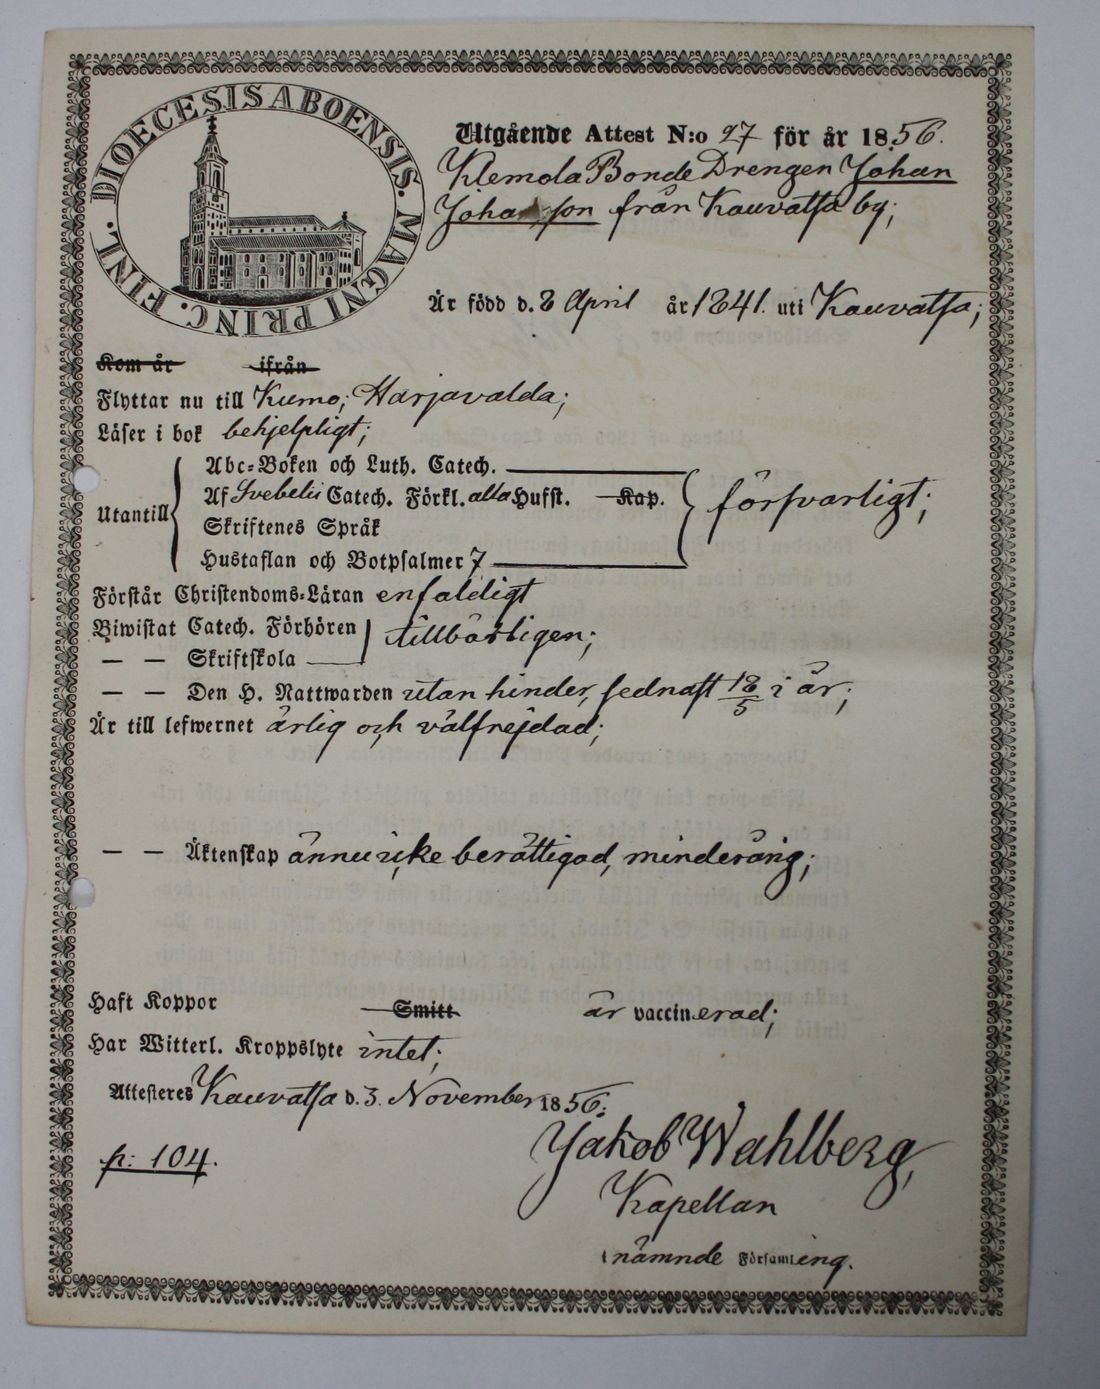 DIOECESIS ABOENSIS. MAGNI PRINC. FINL.
Utgående Attest N:o 27 för år 1856.
Klemola Bonde Drengen Johan
Johansson från Kauvatsa by;
Är född d. 8 April år 1841. uti Kauvatsa;
Kom år ifrån
Flyttar nu till Kumo, Harjavalda;
Läser i bok behjelpligt;
Utantill
Abc-Boken och Luth. Catech.
Af Svebelii Catech. Förkl. alla Hufst. Kap.
försvarligt;
Skriftenes Språk
Hustaflan och Botpsalmer 7
Förstår Christendoms-Läran enfaldigt
Biwistat Catech. Förhören
tillbörligen;
— — Skriftskola
— — Den H. Nattwarden utan hinder, sednast 18/5 i år;
Är till lefwernet ärlig och välfrejdad;
— — Äktenskap ännu icke berättigad, minderårig;
Haft Koppor Smitt är vaccinerad;
Har Witterl. Kroppslyte intet;
Attesteres Kauvatsa d. 3. November 1856.
p: 104.
Jakob Wahlberg,
Kapellan
i nämnde Församling.